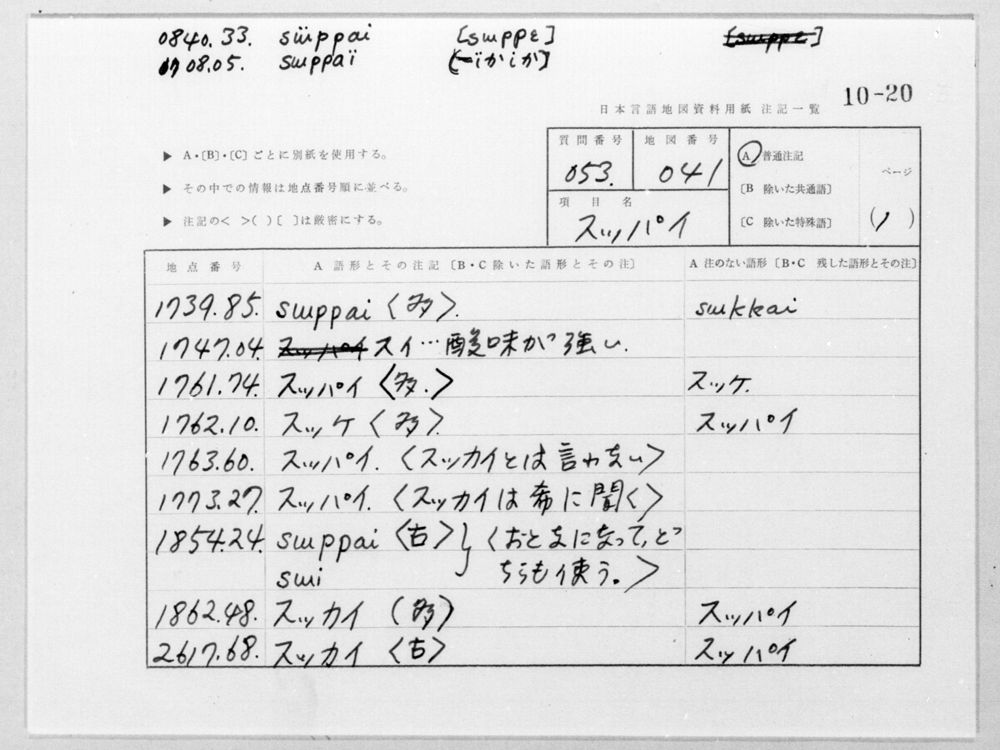 0840.33. sïɯppai [sɯppɛ]
08.05. sɯppaï
10-20
日本言語地図資料用紙 注記一覧
▶ A・〔B〕・〔C〕ごとに別紙を使用する。
▶ その中での情報は地点番号順に並べる。
▶ 注記の< >( )〔 〕は厳密にする。
質問番号 地図番号
053. 041
項目名
スッパイ
A 普通注記
〔B 除いた共通語〕
〔C 除いた特殊語〕
ページ
(1)
地点番号 A 語形とその注記〔B・C除いた語形とその注〕 A 注のない語形〔B・C 残した語形とその注〕
1739.85. sɯppai〈多〉. sɯkkai
1747.04. スイ…酸味が強い.
1761.74. スッパイ〈多.〉 スッケ.
1762.10. スッケ〈多〉. スッパイ
1763.60. スッパイ.〈スッカイとは言わない〉
1773.27. スッパイ.〈スッカイは希に聞く〉
1854.24. sɯppai〈古〉}〈おとなになって,どっ
sɯi ちらも使う。〉
1862.48. スッカイ (多) スッパイ
2617.68. スッカイ〈古〉 スッパイ